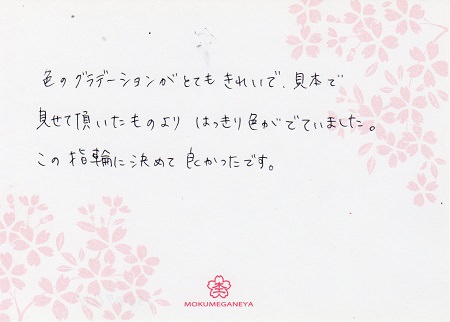 色のグラデーションがとてもきれいで、見本で
見せて頂いたものより はっきり色がでていました。
この指輪に決めて良かったです。
MOKUMEGANEYA